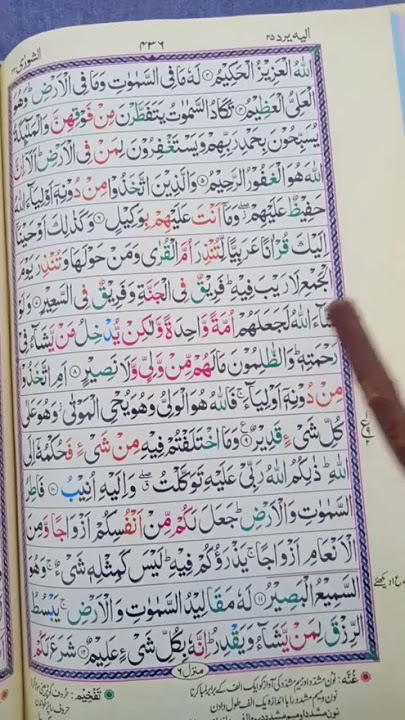 اليه يرد ٢٥
٤٣٦
الشورٰى
اللهُ الْعَزِيْزُ الْحَكِيْمُ ۝ لَهٗ مَا فِى السَّمٰوٰتِ وَمَا فِى الْاَرْضِ ؕ وَهُوَ
الْعَلِىُّ الْعَظِيْمُ ۝ تَكَادُ السَّمٰوٰتُ يَتَفَطَّرْنَ مِنْ فَوْقِهِنَّ وَالْمَلٰٓئِكَةُ
يُسَبِّحُوْنَ بِحَمْدِ رَبِّهِمْ وَيَسْتَغْفِرُوْنَ لِمَنْ فِى الْاَرْضِ ؕ اَلَاۤ اِنَّ
اللهَ هُوَ الْغَفُوْرُ الرَّحِيْمُ ۝ وَالَّذِيْنَ اتَّخَذُوْا مِنْ دُوْنِهٖۤ اَوْلِيَآءَ اللهُ
حَفِيْظٌ عَلَيْهِمْ ۖ وَمَاۤ اَنْتَ عَلَيْهِمْ بِوَكِيْلٍ ۝ وَكَذٰلِكَ اَوْحَيْنَاۤ
اِلَيْكَ قُرْاٰنًا عَرَبِيًّا لِّتُنْذِرَ اُمَّ الْقُرٰى وَمَنْ حَوْلَهَا وَتُنْذِرَ يَوْمَ
الْجَمْعِ لَا رَيْبَ فِيْهِ ؕ فَرِيْقٌ فِى الْجَنَّةِ وَفَرِيْقٌ فِى السَّعِيْرِ ۝ وَلَوْ
شَآءَ اللهُ لَجَعَلَهُمْ اُمَّةً وَّاحِدَةً وَّلٰكِنْ يُّدْخِلُ مَنْ يَّشَآءُ فِىْ
رَحْمَتِهٖ ؕ وَالظّٰلِمُوْنَ مَا لَهُمْ مِّنْ وَّلِىٍّ وَّلَا نَصِيْرٍ ۝ اَمِ اتَّخَذُوْا
مِنْ دُوْنِهٖۤ اَوْلِيَآءَ ۚ فَاللهُ هُوَ الْوَلِىُّ وَهُوَ يُحْىِ الْمَوْتٰى ۫ وَهُوَ عَلٰى
كُلِّ شَىْءٍ قَدِيْرٌ ۝ وَمَا اخْتَلَفْتُمْ فِيْهِ مِنْ شَىْءٍ فَحُكْمُهٗۤ اِلَى
اللهِ ؕ ذٰلِكُمُ اللهُ رَبِّىْ عَلَيْهِ تَوَكَّلْتُ ۖ وَاِلَيْهِ اُنِيْبُ ۝ فَاطِرُ
السَّمٰوٰتِ وَالْاَرْضِ ؕ جَعَلَ لَكُمْ مِّنْ اَنْفُسِكُمْ اَزْوَاجًا وَّمِنَ
الْاَنْعَامِ اَزْوَاجًا ۚ يَذْرَؤُكُمْ فِيْهِ ؕ لَيْسَ كَمِثْلِهٖ شَىْءٌ ۚ وَهُوَ
السَّمِيْعُ الْبَصِيْرُ ۝ لَهٗ مَقَالِيْدُ السَّمٰوٰتِ وَالْاَرْضِ ۚ يَبْسُطُ
الرِّزْقَ لِمَنْ يَّشَآءُ وَيَقْدِرُ ؕ اِنَّهٗ بِكُلِّ شَىْءٍ عَلِيْمٌ ۝ شَرَعَ لَكُمْ
منزل ٦